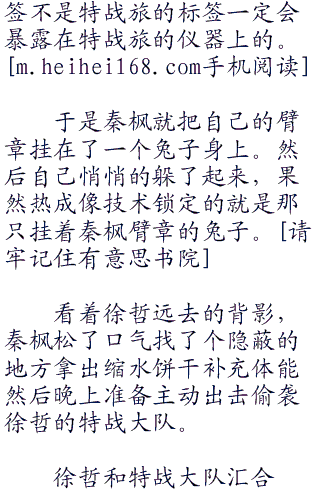 签不是特战旅的标签一定会
暴露在特战旅的仪器上的。
[m.heihei168.com手机阅读]
于是秦枫就把自己的臂
章挂在了一个兔子身上。然
后自己悄悄的躲了起来，果
然热成像技术锁定的就是那
只挂着秦枫臂章的兔子。[请
牢记住有意思书院]
看着徐哲远去的背影，
秦枫松了口气找了个隐蔽的
地方拿出缩水饼干补充体能
然后晚上准备主动出击偷袭
徐哲的特战大队。
徐哲和特战大队汇合